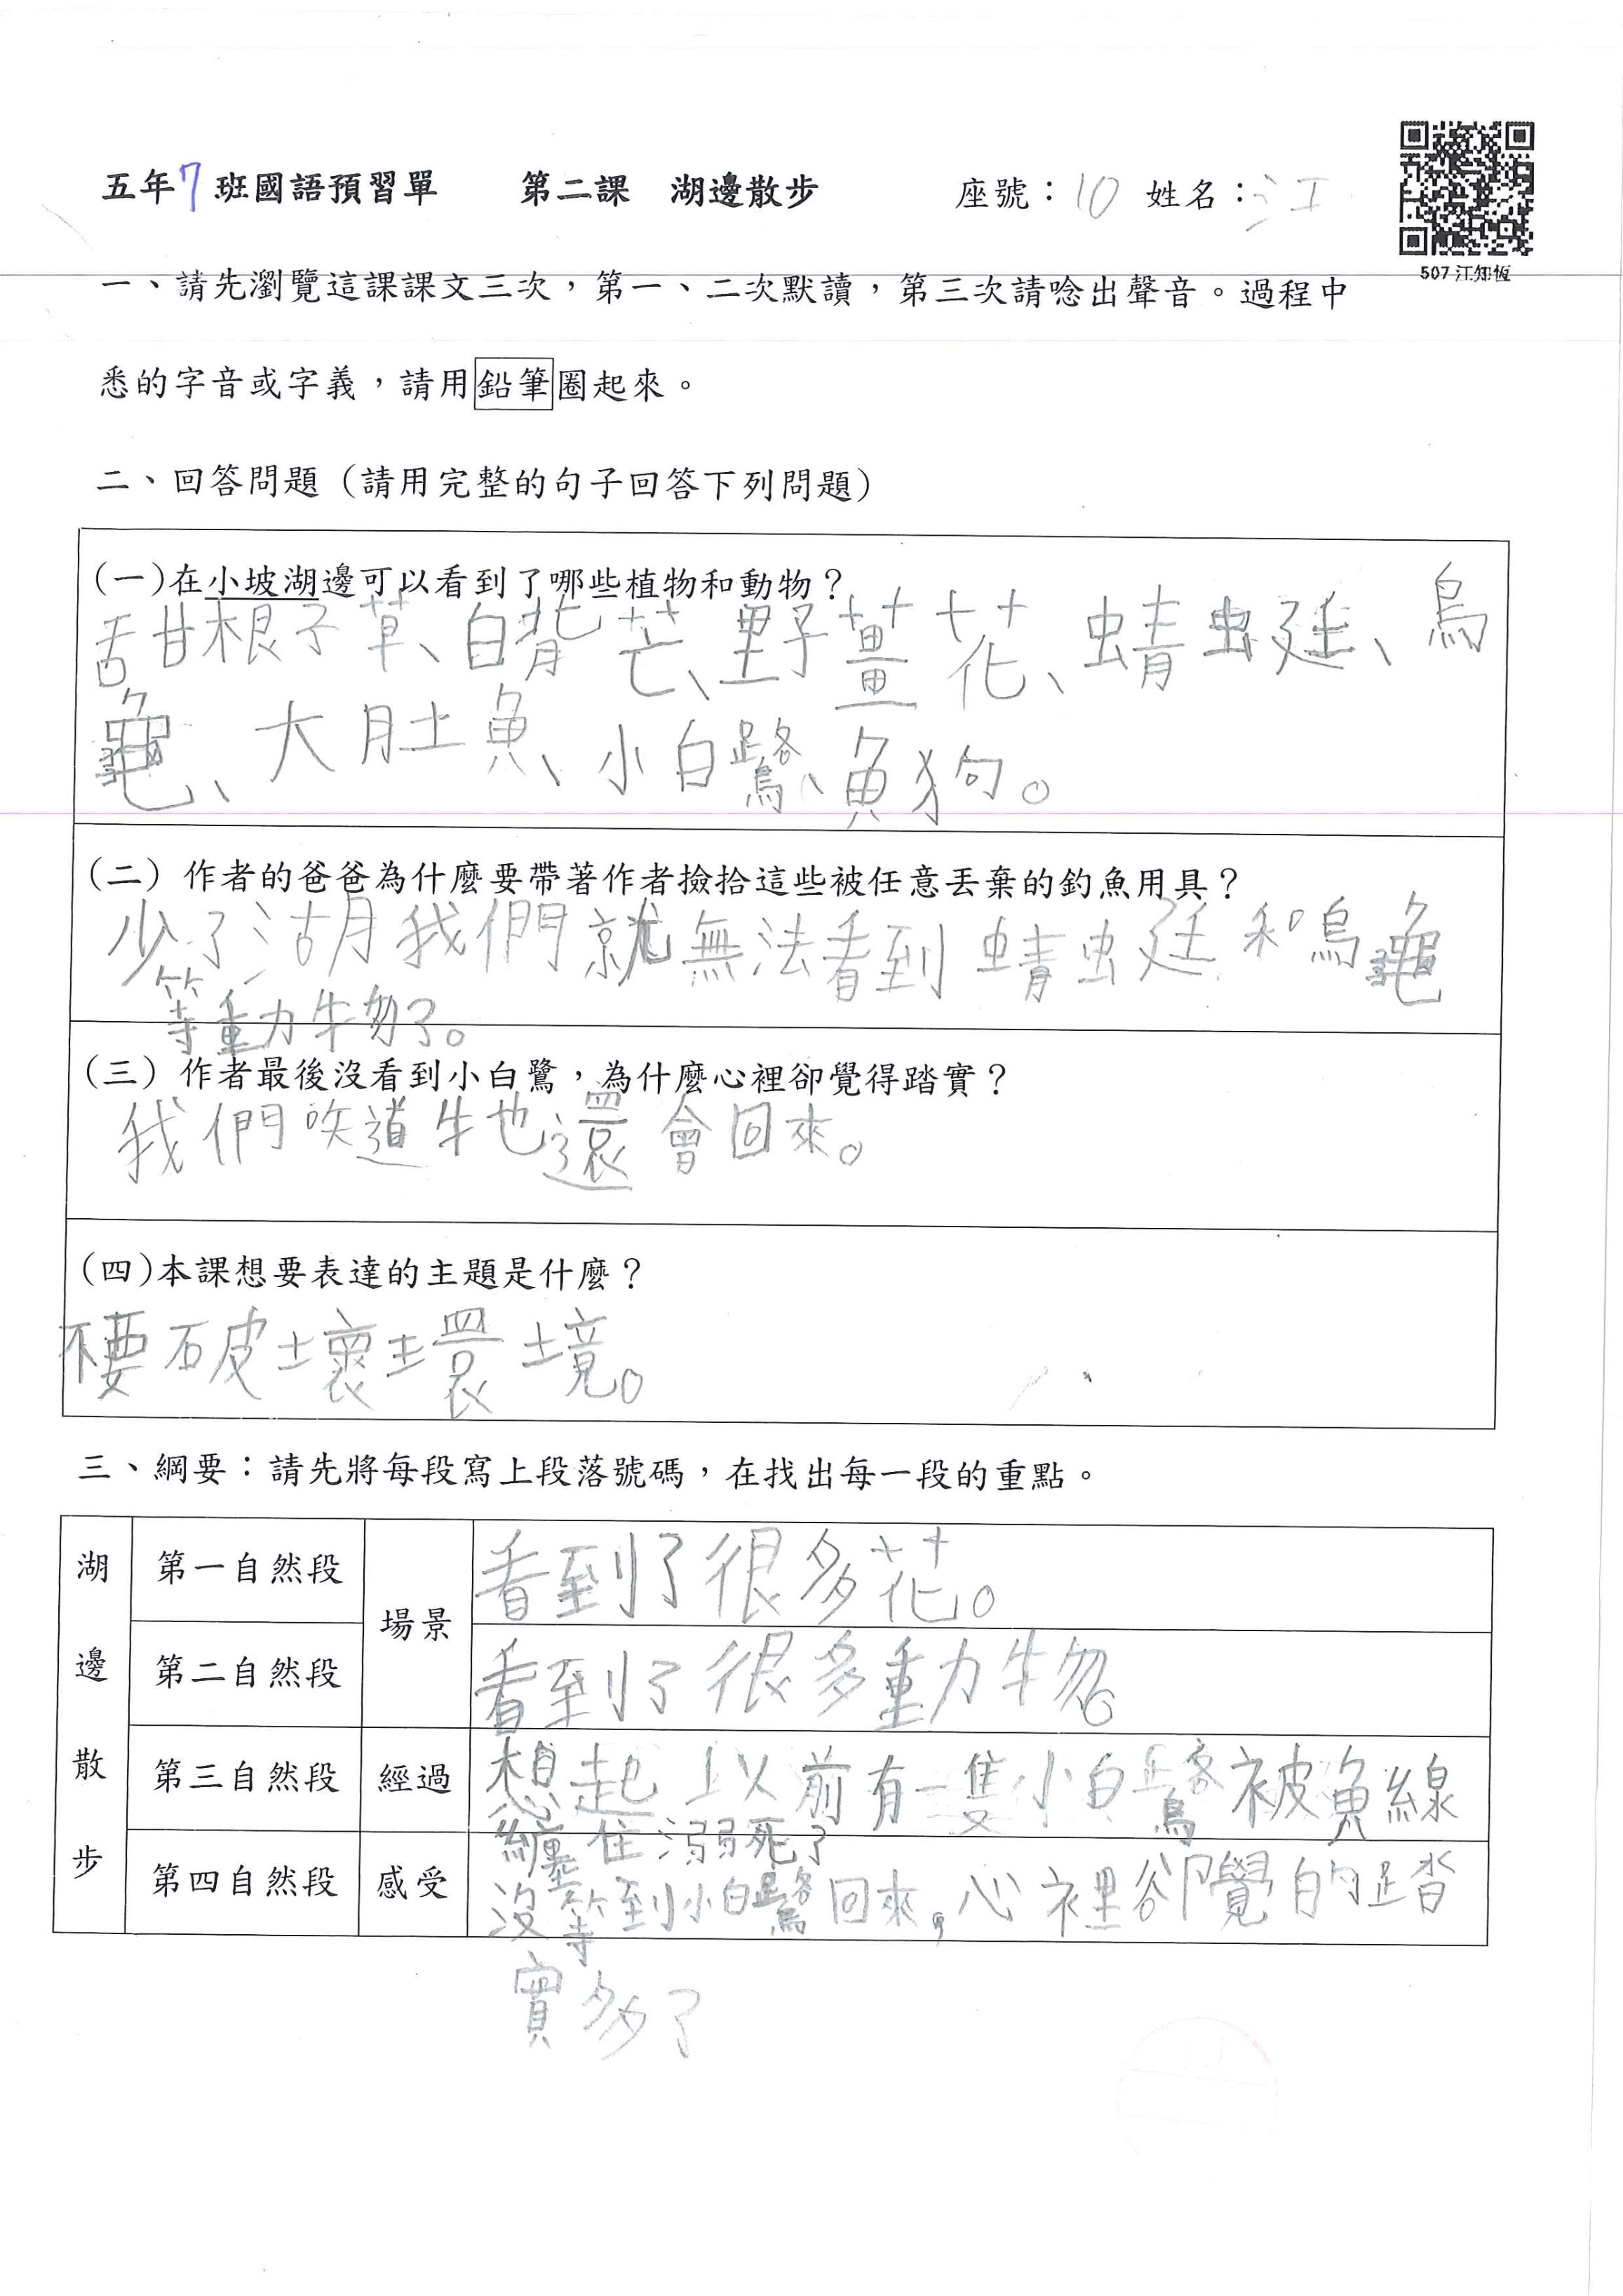 五年7班國語預習單 第二課 湖邊散步 座號：10 姓名：江
507 江知恆
一、請先瀏覽這課課文三次，第一、二次默讀，第三次請唸出聲音。過程中
悉的字音或字義，請用鉛筆圈起來。
二、回答問題（請用完整的句子回答下列問題）
(一)在小坡湖邊可以看到了哪些植物和動物？
甜根子草、白背芒、野薑花、蜻蜓、烏
龜、大肚魚、小白鷺、魚狗。
(二) 作者的爸爸為什麼要帶著作者撿拾這些被任意丟棄的釣魚用具？
少了湖我們就無法看到蜻蜓和烏龜
等動物了。
(三) 作者最後沒看到小白鷺，為什麼心裡卻覺得踏實？
我們道牠還會回來。
(四)本課想要表達的主題是什麼？
不要破壞環境。
三、綱要：請先將每段寫上段落號碼，在找出每一段的重點。
湖邊散步
第一自然段 場景 看到了很多花。
第二自然段 看到了很多動物。
第三自然段 經過 想起以前有一隻小白鷺被魚線
纏住溺死了
第四自然段 感受 沒等到小白鷺回來，心裡卻覺的踏
實多了